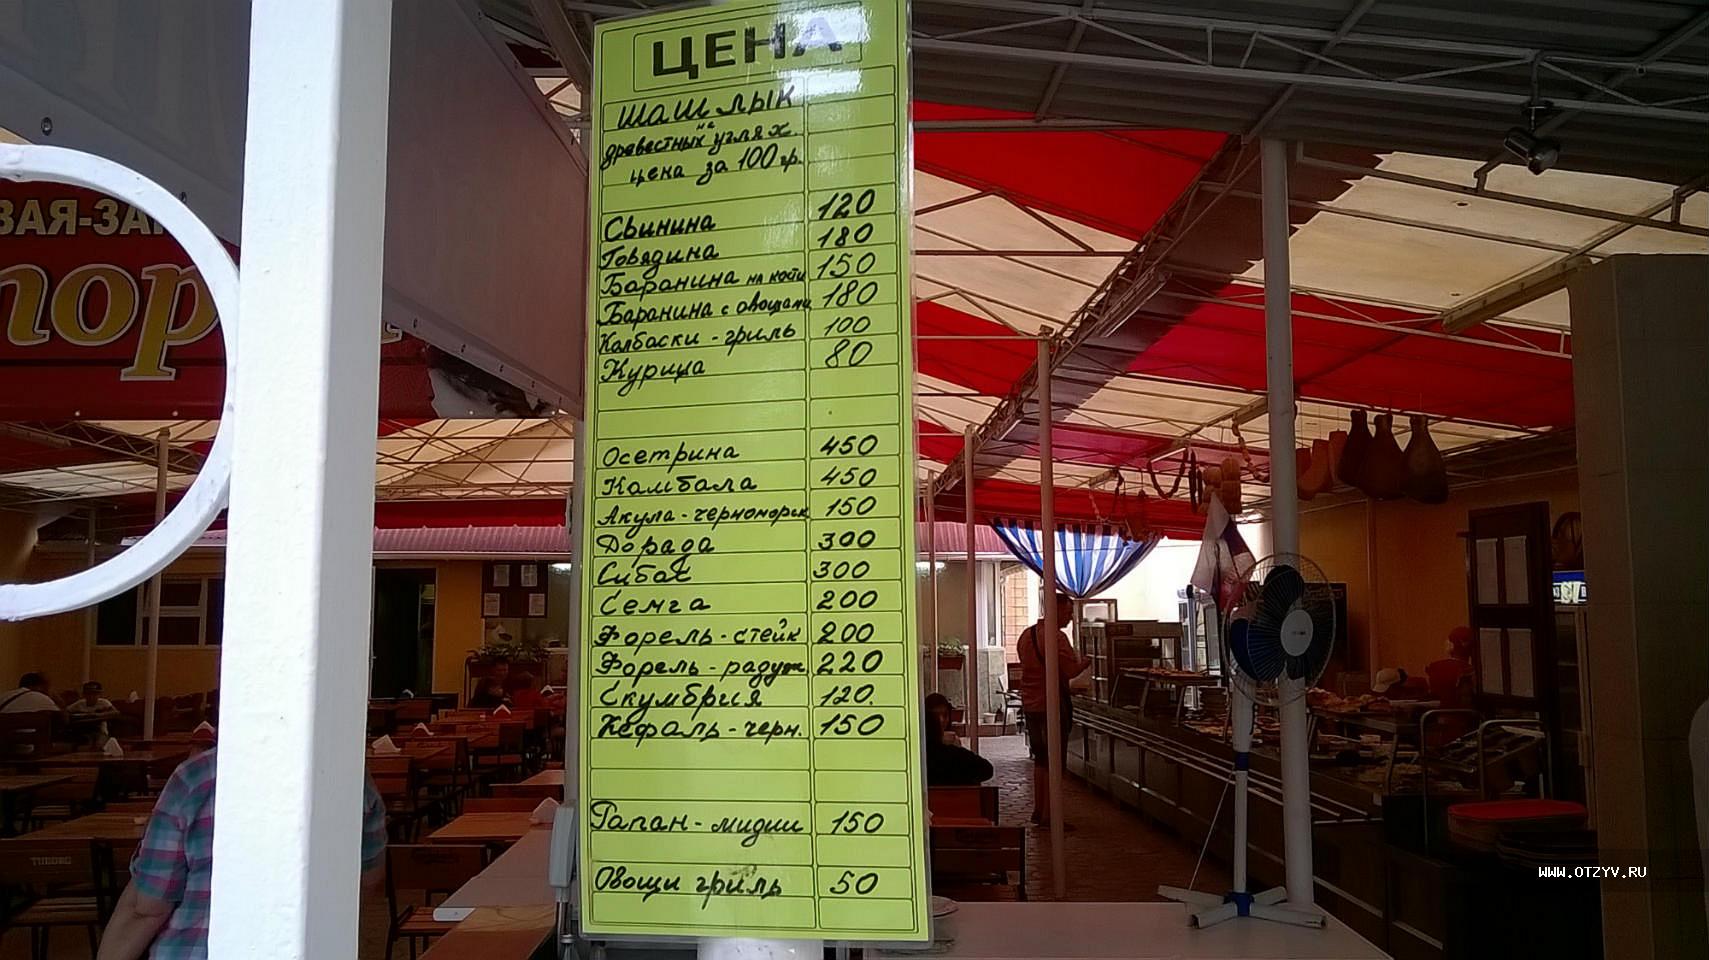 ЦЕНА
Шашлык
на
древестных углях.
цена за 100 гр.
Свинина 120
Говядина 180
Баранина на кости 150
Баранина с овощами 180
Колбаски - гриль 100
Курица 80
Осетрина 450
Камбала 450
Акула - черноморск 150
Дорада 300
Сибас 300
Семга 200
Форель - стейк 200
Форель - радужн 220
Скумбрия 120.
Кефаль - черн. 150
Рапан - мидии 150
Овощи гриль 50
ВАЯ-ЗА
тор
TUBORG
WWW.OTZYV.RU